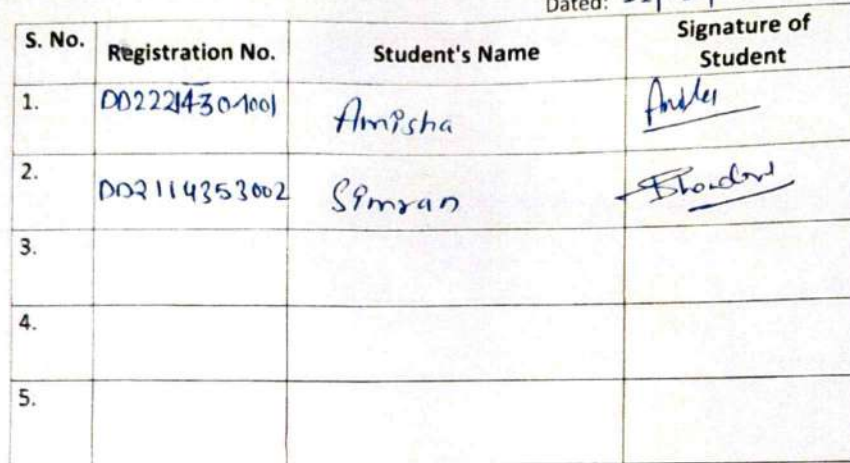 Dated:
S. No. Registration No. Student's Name Signature of Student
1. DD22214301001 Amisha
2. DD2114353002 Simran
3.
4.
5.